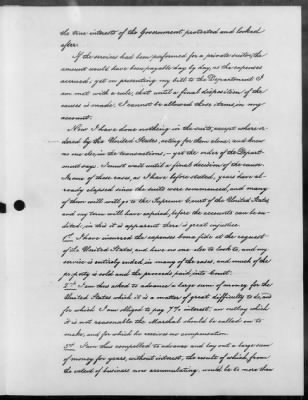 the true interests of the Government protected and looked
after.
If the services had been performed for a private suitor, the
amount would have been payable day by day, as the expenses
accrued, yet on presenting my bill to the Department I
am met with a rule, that until a final disposition of the
causes is made, I cannot be allowed those items in my
account.
Now I have done nothing in the suits, except when or-
dered by the United States, acting for them alone, and know
no one else in the transactions, yet the order of the Depart-
ment says I must wait until a final decision of the cause.
In one of these cases, as I have before stated, years have al-
ready elapsed since the suits were commenced, and many
of them will will go to the Supreme Court of the United States
and my term will have expired, before the accounts can be au-
dited, in this it is apparent there is great injustice.
1st I have incurred the expenses bona fide at the request
of the United States, and have no one else to look to, and my
service is entirely ended, in many of the cases, and much of the
property is sold and the proceeds paid into Court.
2d I am thus asked to advance a large sum of money for the
United States which it is a matter of great difficulty to do, and
for which I am obliged to pay 7% interest, an outlay which
it is not reasonable the Marshal should be called on to
make, and for which he receives no compensation.
3d I am thus compelled to advance and lay out a large sum
of money for years, without interest, the results of which, from
the extent of business now accumulating, would be to more than